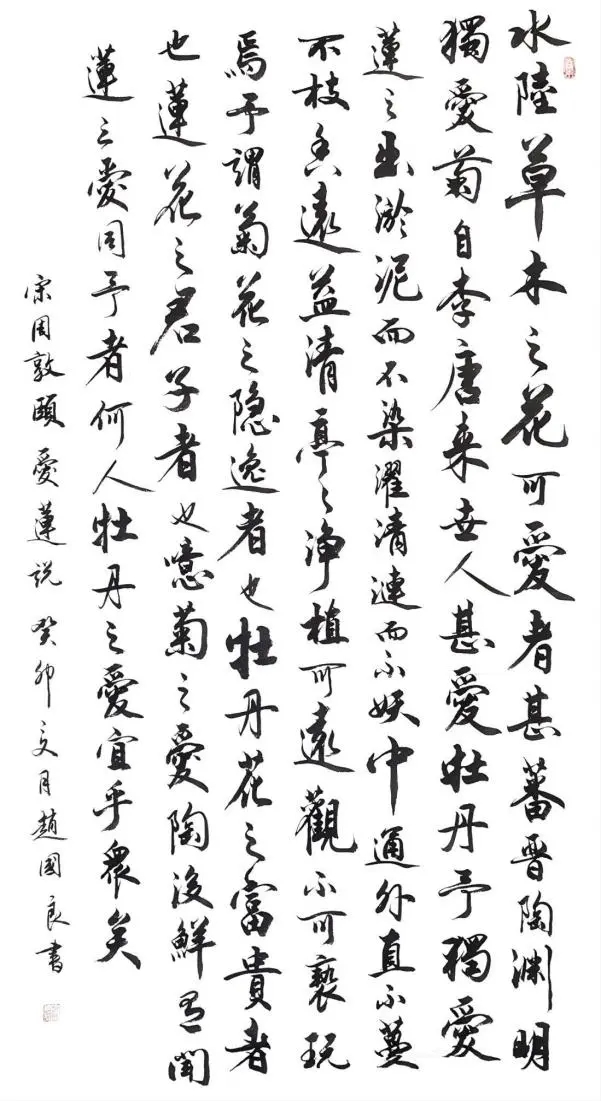 水陸草木之花可愛者甚蕃晉陶渊明
獨愛菊自李唐来世人甚愛牡丹予獨愛
蓮之出淤泥而不染濯清漣而不妖中通外直不蔓
不枝香遠益清亭々净植可遠觀不可褻玩
焉予謂菊花之隐逸者也牡丹花之富貴者
也蓮花之君子者也噫菊之愛陶後鮮有聞
蓮之愛同予者何人牡丹之愛宜乎衆矣
宋周敦頤愛蓮说 癸卯月趙國良書